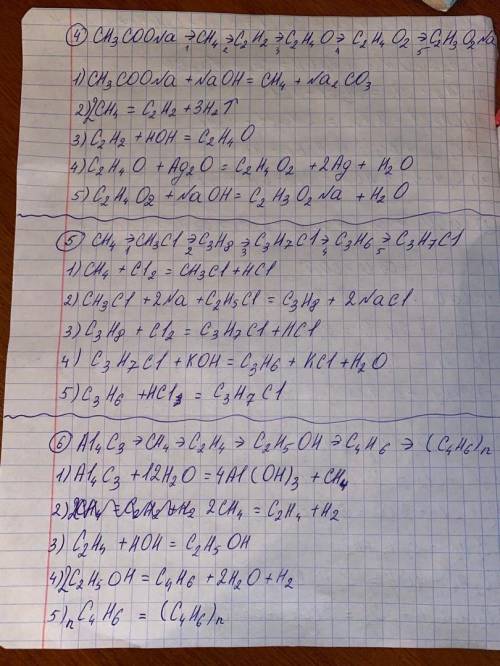 ④ CH3COONa →1 CH4 →2 C2H2 →3 C2H4O →4 C2H4O2 →5 C2H3O2Na
1) CH3COONa + NaOH = CH4 + Na2CO3
2) 2CH4 = C2H2 + 3H2↑
3) C2H2 + HOH = C2H4O
4) C2H4O + Ag2O = C2H4O2 + 2Ag + H2O
5) C2H4O2 + NaOH = C2H3O2Na + H2O
⑤ CH4 →1 CH3Cl →2 C3H8 →3 C3H7Cl →4 C3H6 →5 C3H7Cl
1) CH4 + Cl2 = CH3Cl + HCl
2) CH3Cl + 2Na + C2H5Cl = C3H8 + 2NaCl
3) C3H8 + Cl2 = C3H7Cl + HCl
4) C3H7Cl + KOH = C3H6 + KCl + H2O
5) C3H6 + HCl = C3H7Cl
⑥ Al4C3 → CH4 → C2H4 → C2H5OH → C4H6 → (C4H6)n
1) Al4C3 + 12H2O = 4Al(OH)3 + CH4
2) 2CH4 = C2H4 + H2
3) C2H4 + HOH = C2H5OH
4) 2C2H5OH = C4H6 + 2H2O + H2
5) nC4H6 = (C4H6)n